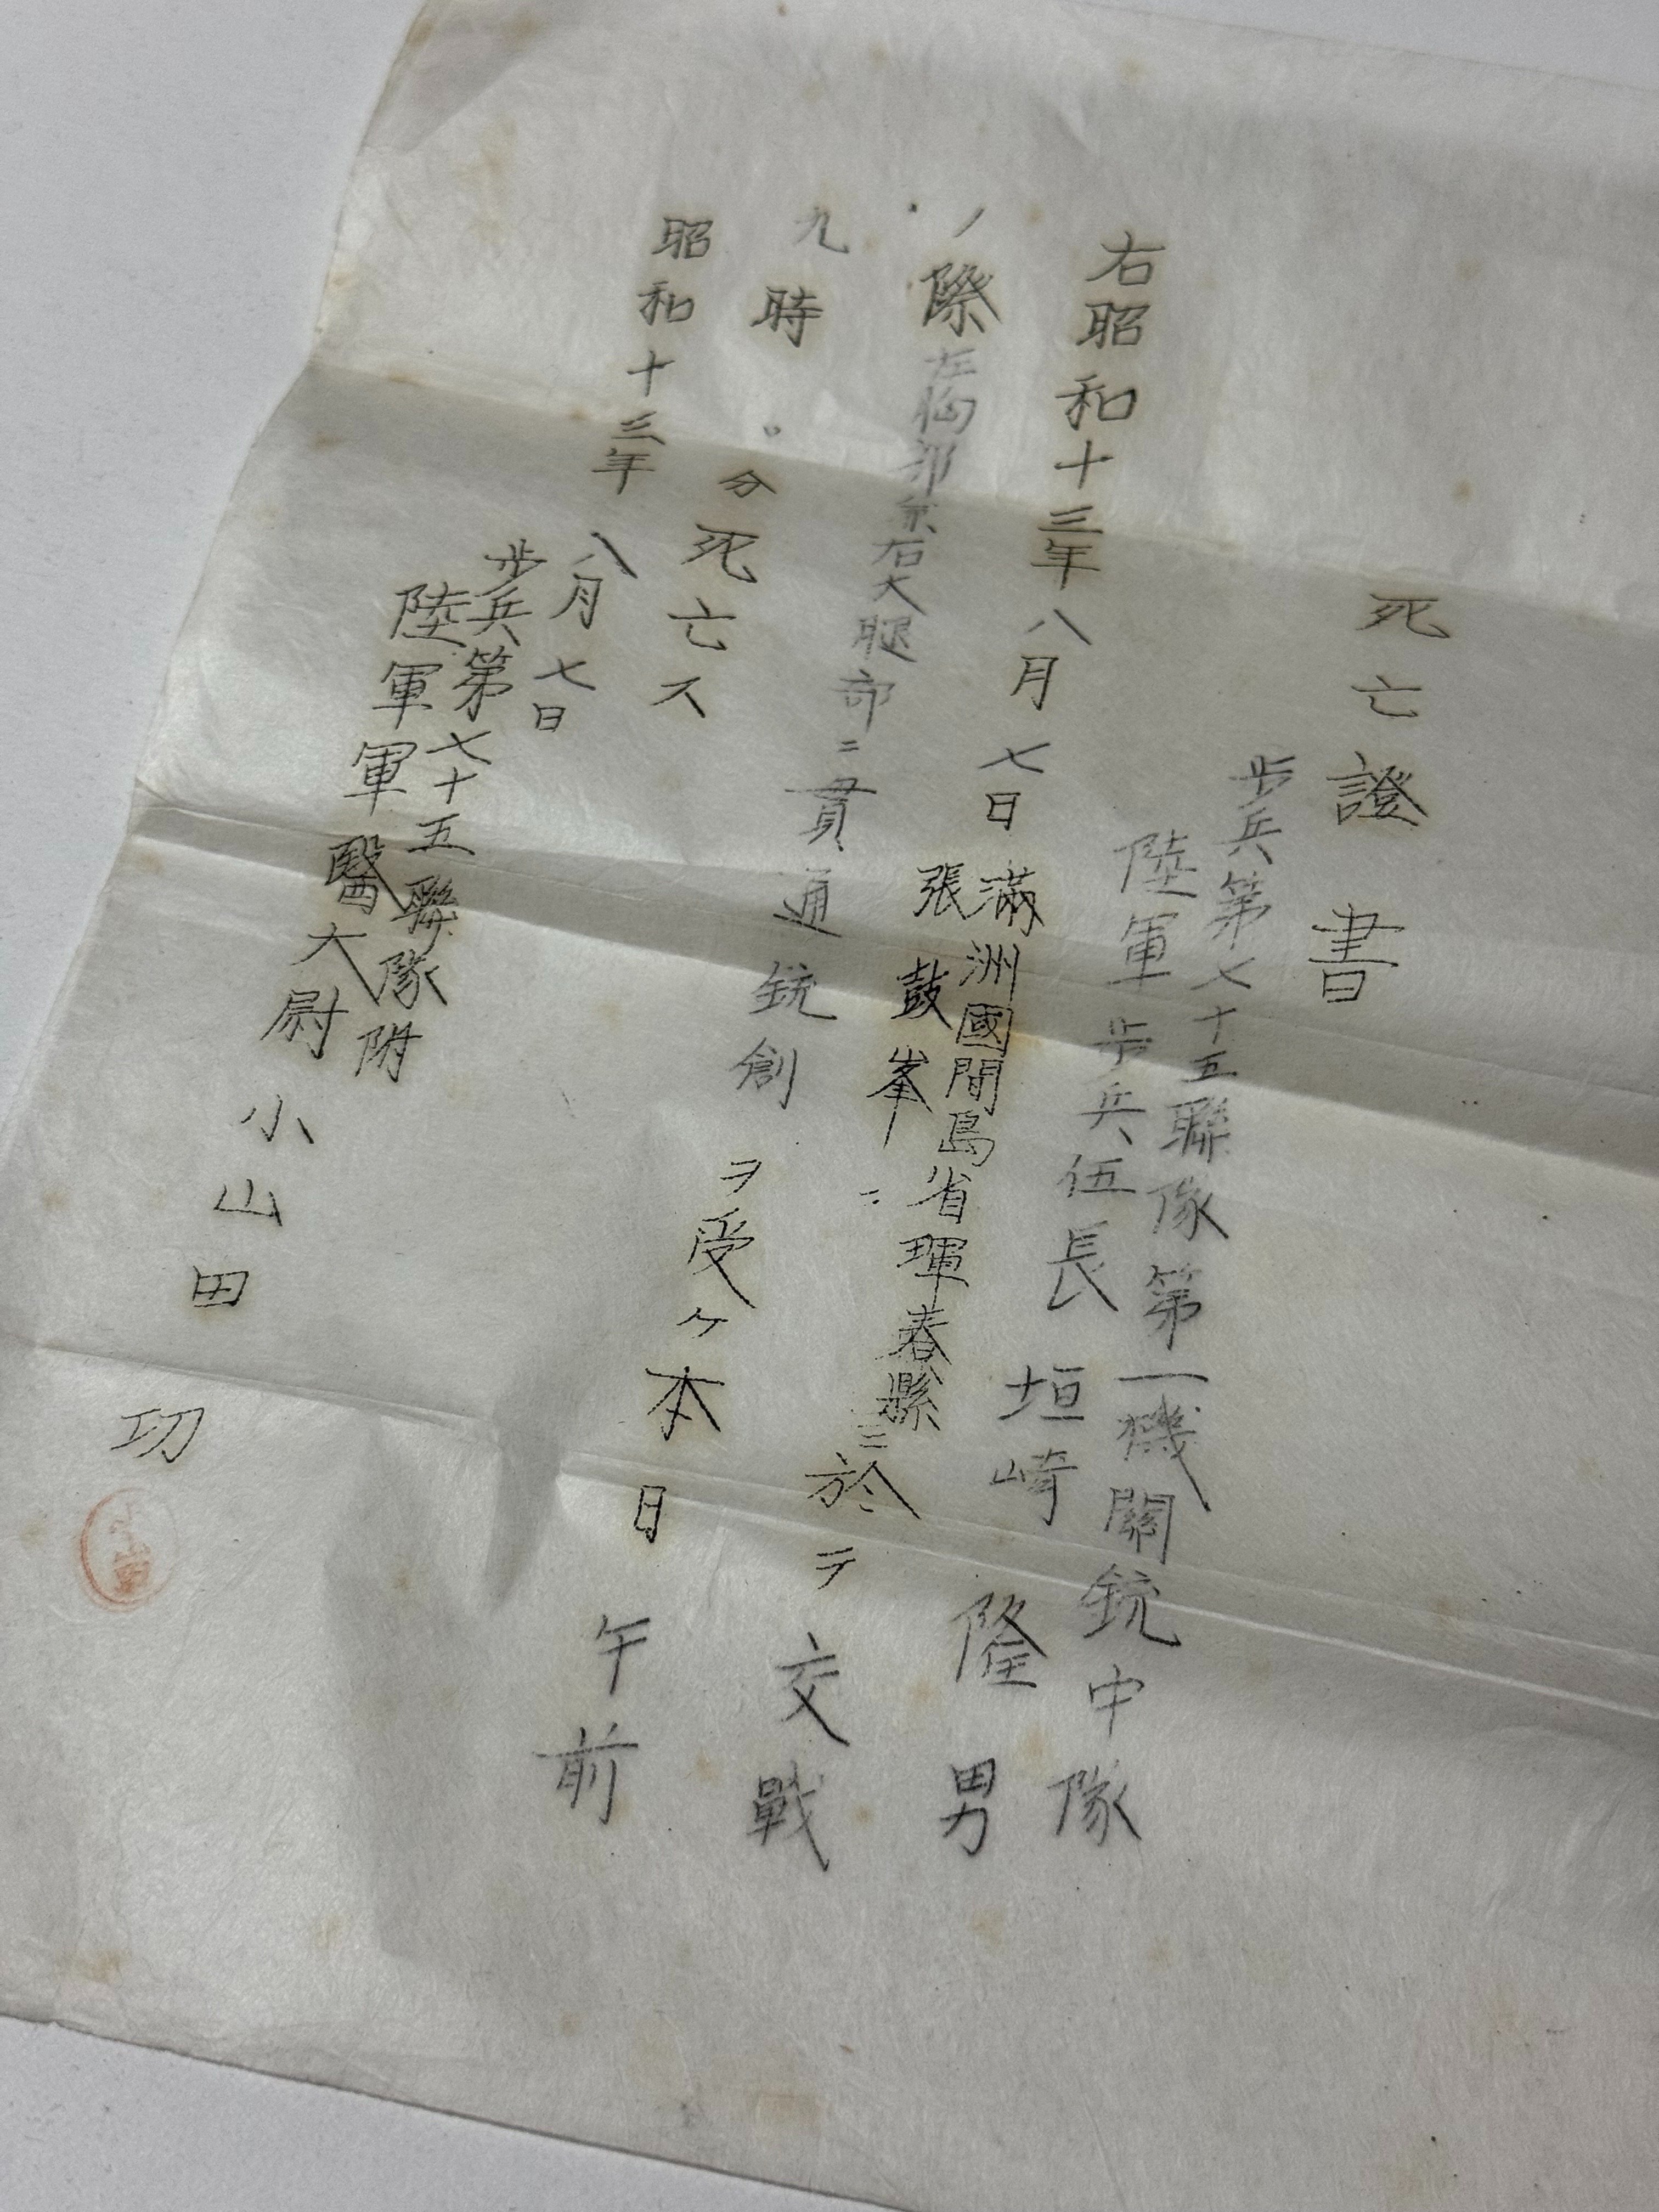 死亡證書
步兵第七十五聯隊第一機關銃中隊
陸軍步兵伍長 垣崎隆男
右昭和十三年八月七日滿洲國間島省琿春縣
張鼓峯ニ於テ交戰
ノ際左胸部並右大腿部ニ貫通銃創ヲ受ケ本日午前
九時 分死亡ス
昭和十三年八月七日
步兵第七十五聯隊附
陸軍軍醫大尉 小山田功